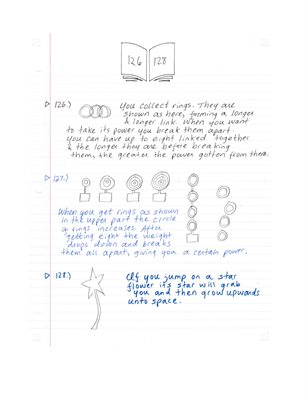 126 128
126.) You collect rings. They are
shown as here, forming a longer
& longer link. When you want
to take its power you break them apart.
You can have up to eight linked together
& the longer they are before breaking
them, the greater the power gotten from them.
127.)
When you get rings as shown
in the upper part the circle
of rings increases. After
getting eight the weight
drops down and breaks
them all apart, giving you a certain power.
128.) If you jump on a star
flower its star will grab
you and then grow upwards
unto space.